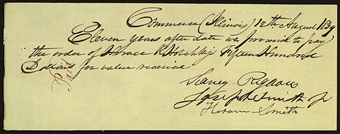 Commerce Illinois 12th August 1839
Eleven years after date we promise to pay
the order of Horace R Hotchkiss Fifteen Hundred
Dollars for value receive
Sidney Rigdon
Joseph Smith Jr
Hiram Smith